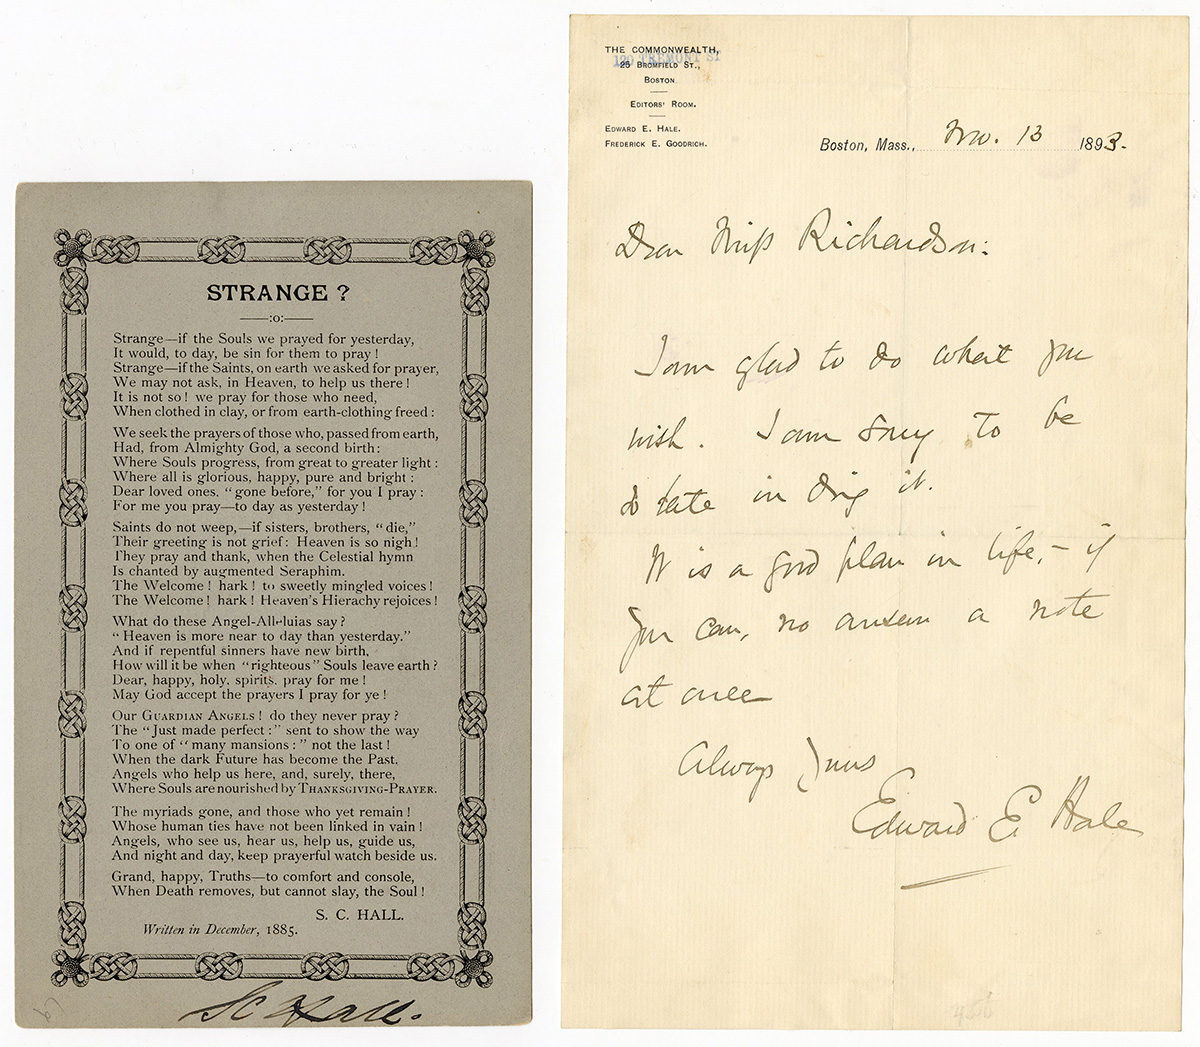 STRANGE ?
—:o:—
Strange—if the Souls we prayed for yesterday,
It would, to day, be sin for them to pray !
Strange—if the Saints, on earth we asked for prayer,
We may not ask, in Heaven, to help us there !
It is not so ! we pray for those who need,
When clothed in clay, or from earth-clothing freed :
We seek the prayers of those who, passed from earth,
Had, from Almighty God, a second birth :
Where Souls progress, from great to greater light :
Where all is glorious, happy, pure and bright :
Dear loved ones, “ gone before,” for you I pray :
For me you pray—to day as yesterday !
Saints do not weep,—if sisters, brothers, “ die,”
Their greeting is not grief : Heaven is so nigh !
They pray and thank, when the Celestial hymn
Is chanted by augmented Seraphim.
The Welcome ! hark ! to sweetly mingled voices !
The Welcome ! hark ! Heaven's Hierachy rejoices !
What do these Angel-Alleluias say ?
“ Heaven is more near to day than yesterday.”
And if repentful sinners have new birth,
How will it be when “righteous” Souls leave earth ?
Dear, happy, holy, spirits, pray for me !
May God accept the prayers I pray for ye !
Our GUARDIAN ANGELS ! do they never pray ?
The “Just made perfect :” sent to show the way
To one of “ many mansions : ” not the last !
When the dark Future has become the Past.
Angels who help us here, and, surely, there,
Where Souls are nourished by THANKSGIVING-PRAYER.
The myriads gone, and those who yet remain !
Whose human ties have not been linked in vain !
Angels, who see us, hear us, help us, guide us,
And night and day, keep prayerful watch beside us.
Grand, happy, Truths—to comfort and console,
When Death removes, but cannot slay, the Soul !
S. C. HALL.
Written in December, 1885.
S C Hall.
THE COMMONWEALTH,
120 TREMONT ST
25 BROMFIELD ST.,
BOSTON.
EDITORS' ROOM.
EDWARD E. HALE.
FREDERICK E. GOODRICH.
Boston, Mass., Nov. 13 1893.
Dear Miss Richardson:
I am glad to do what you
wish. I am sorry to be
so late in doing it.
It is a good plan in life,– if
you can, to answer a note
at once
Always Yours
Edward E. Hale